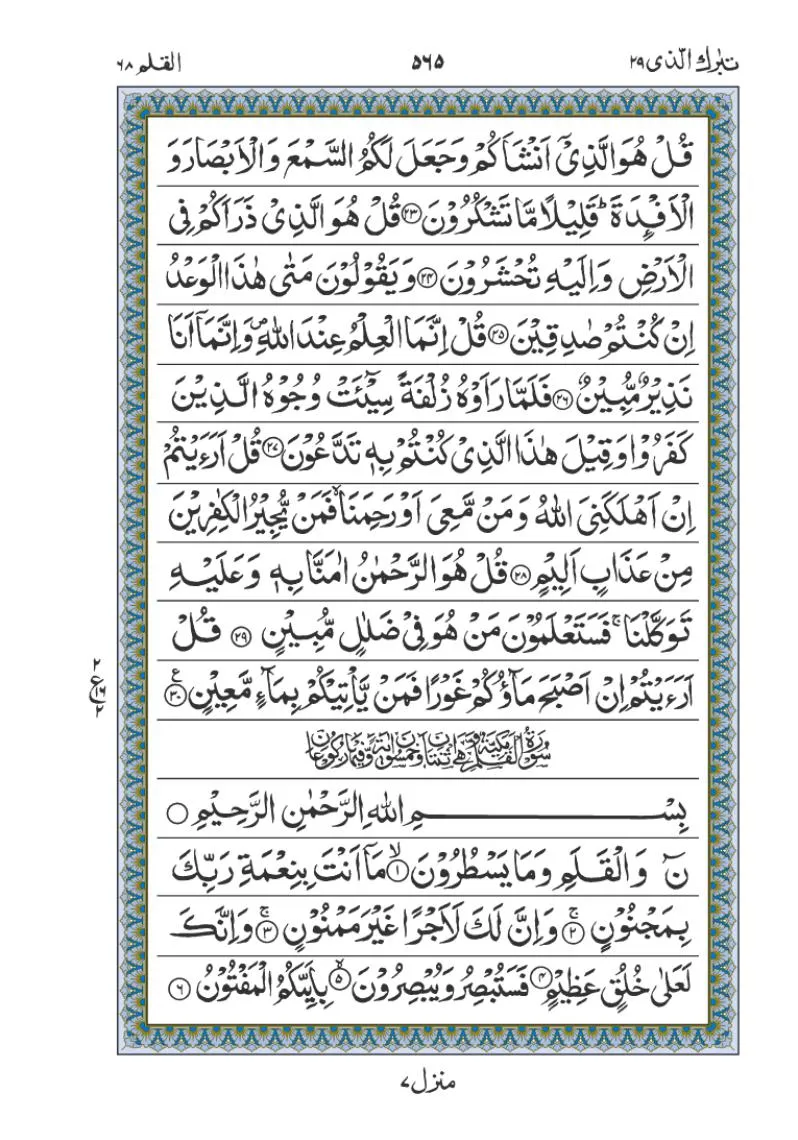 تبٰرك الّذی ۲۹
۵۶۵
القلم ۶۸
قُلْ هُوَ الَّذِیْۤ اَنْشَاَكُمْ وَ جَعَلَ لَكُمُ السَّمْعَ وَ الْاَبْصَارَ وَ
الْاَفْـِٕدَةَ ؕ قَلِیْلًا مَّا تَشْكُرُوْنَ ۲۳ قُلْ هُوَ الَّذِیْ ذَرَاَكُمْ فِی
الْاَرْضِ وَ اِلَیْهِ تُحْشَرُوْنَ ۲۴ وَ یَقُوْلُوْنَ مَتٰى هٰذَا الْوَعْدُ
اِنْ كُنْتُمْ صٰدِقِیْنَ ۲۵ قُلْ اِنَّمَا الْعِلْمُ عِنْدَ اللّٰهِ ۪ وَ اِنَّمَاۤ اَنَا
نَذِیْرٌ مُّبِیْنٌ ۲۶ فَلَمَّا رَاَوْهُ زُلْفَةً سِیْٓـَٔتْ وُجُوْهُ الَّذِیْنَ
كَفَرُوْا وَ قِیْلَ هٰذَا الَّذِیْ كُنْتُمْ بِهٖ تَدَّعُوْنَ ۲۷ قُلْ اَرَءَیْتُمْ
اِنْ اَهْلَكَنِیَ اللّٰهُ وَ مَنْ مَّعِیَ اَوْ رَحِمَنَا ۙ فَمَنْ یُّجِیْرُ الْكٰفِرِیْنَ
مِنْ عَذَابٍ اَلِیْمٍ ۲۸ قُلْ هُوَ الرَّحْمٰنُ اٰمَنَّا بِهٖ وَ عَلَیْهِ
تَوَكَّلْنَا ۚ فَسَتَعْلَمُوْنَ مَنْ هُوَ فِیْ ضَلٰلٍ مُّبِیْنٍ ۲۹ قُلْ
اَرَءَیْتُمْ اِنْ اَصْبَحَ مَآؤُكُمْ غَوْرًا فَمَنْ یَّاْتِیْكُمْ بِمَآءٍ مَّعِیْنٍ ۳۰ ع
۲
ع ۱۶
۲
سُوْرَةُ الْقَلَمِ مَكِّیَّةٌ وَّهِیَ اثْنَتَانِ وَخَمْسُوْنَ اٰیَةً وَّفِیْهَا رُكُوْعَانِ
بِسْمِ اللّٰهِ الرَّحْمٰنِ الرَّحِیْمِ
نٓ وَ الْقَلَمِ وَ مَا یَسْطُرُوْنَ ۱ ۙ مَاۤ اَنْتَ بِنِعْمَةِ رَبِّكَ
بِمَجْنُوْنٍ ۲ ۚ وَ اِنَّ لَكَ لَاَجْرًا غَیْرَ مَمْنُوْنٍ ۳ ۚ وَ اِنَّكَ
لَعَلٰى خُلُقٍ عَظِیْمٍ ۴ فَسَتُبْصِرُ وَ یُبْصِرُوْنَ ۵ ۙ بِاَیِّىكُمُ الْمَفْتُوْنُ ۶
منزل ۷